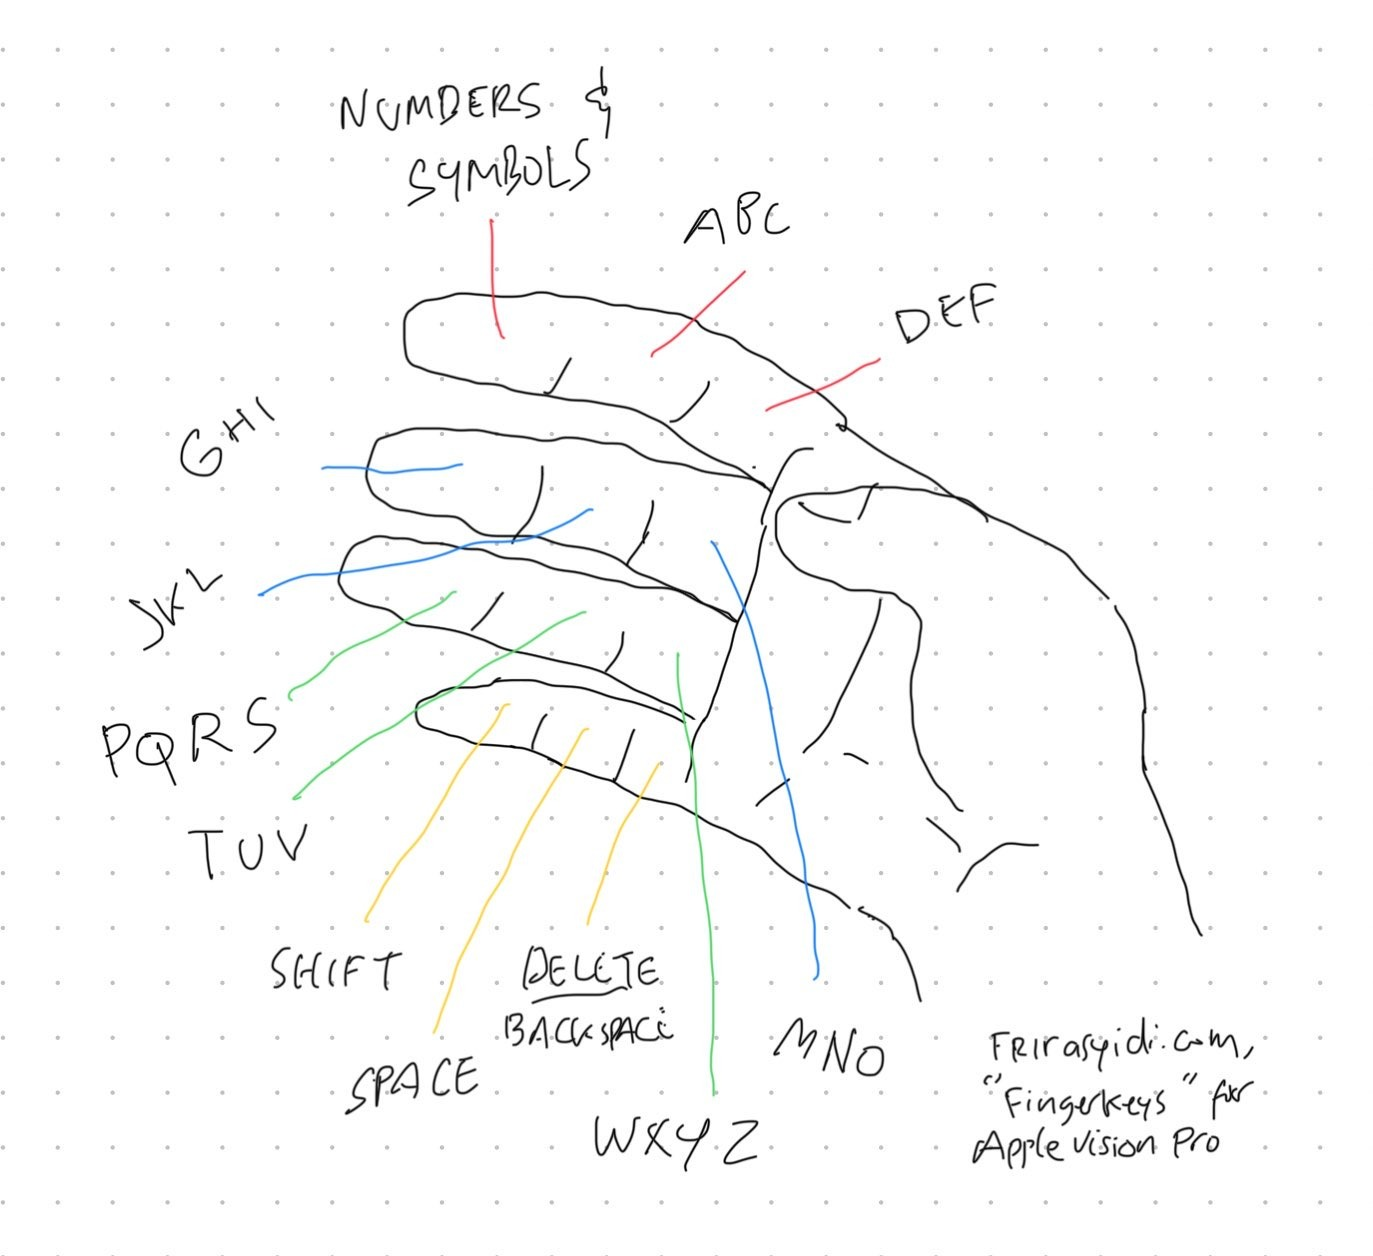 NUMBERS &
SYMBOLS
ABC
DEF
GHI
JKL
PQRS
TUV
SHIFT
DELETE
BACKSPACE
SPACE
MNO
WXYZ
FRIrasyidi.com,
"Fingerkeys" for
Apple Vision Pro